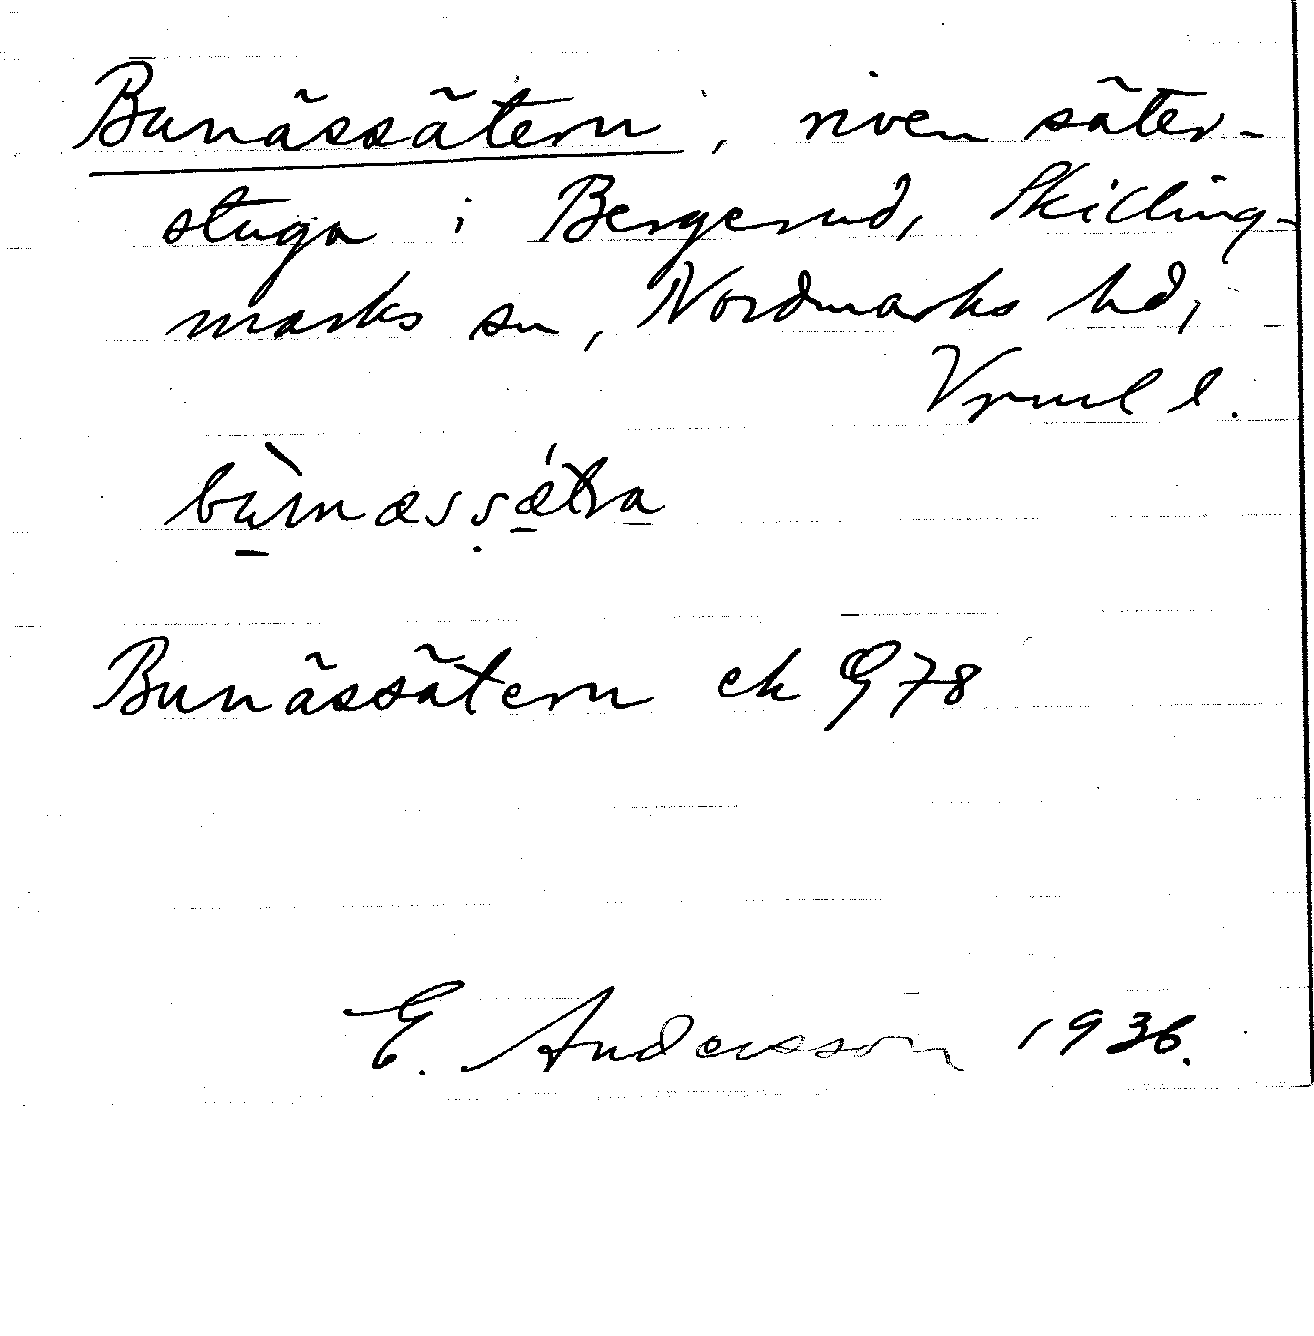 Bunässätern, riven säter-
stuga i Bergerud, Skilling-
marks sn, Nordmarks hd,
Vrml l.
Bunässätern ek G78
E. Andersson 1936.